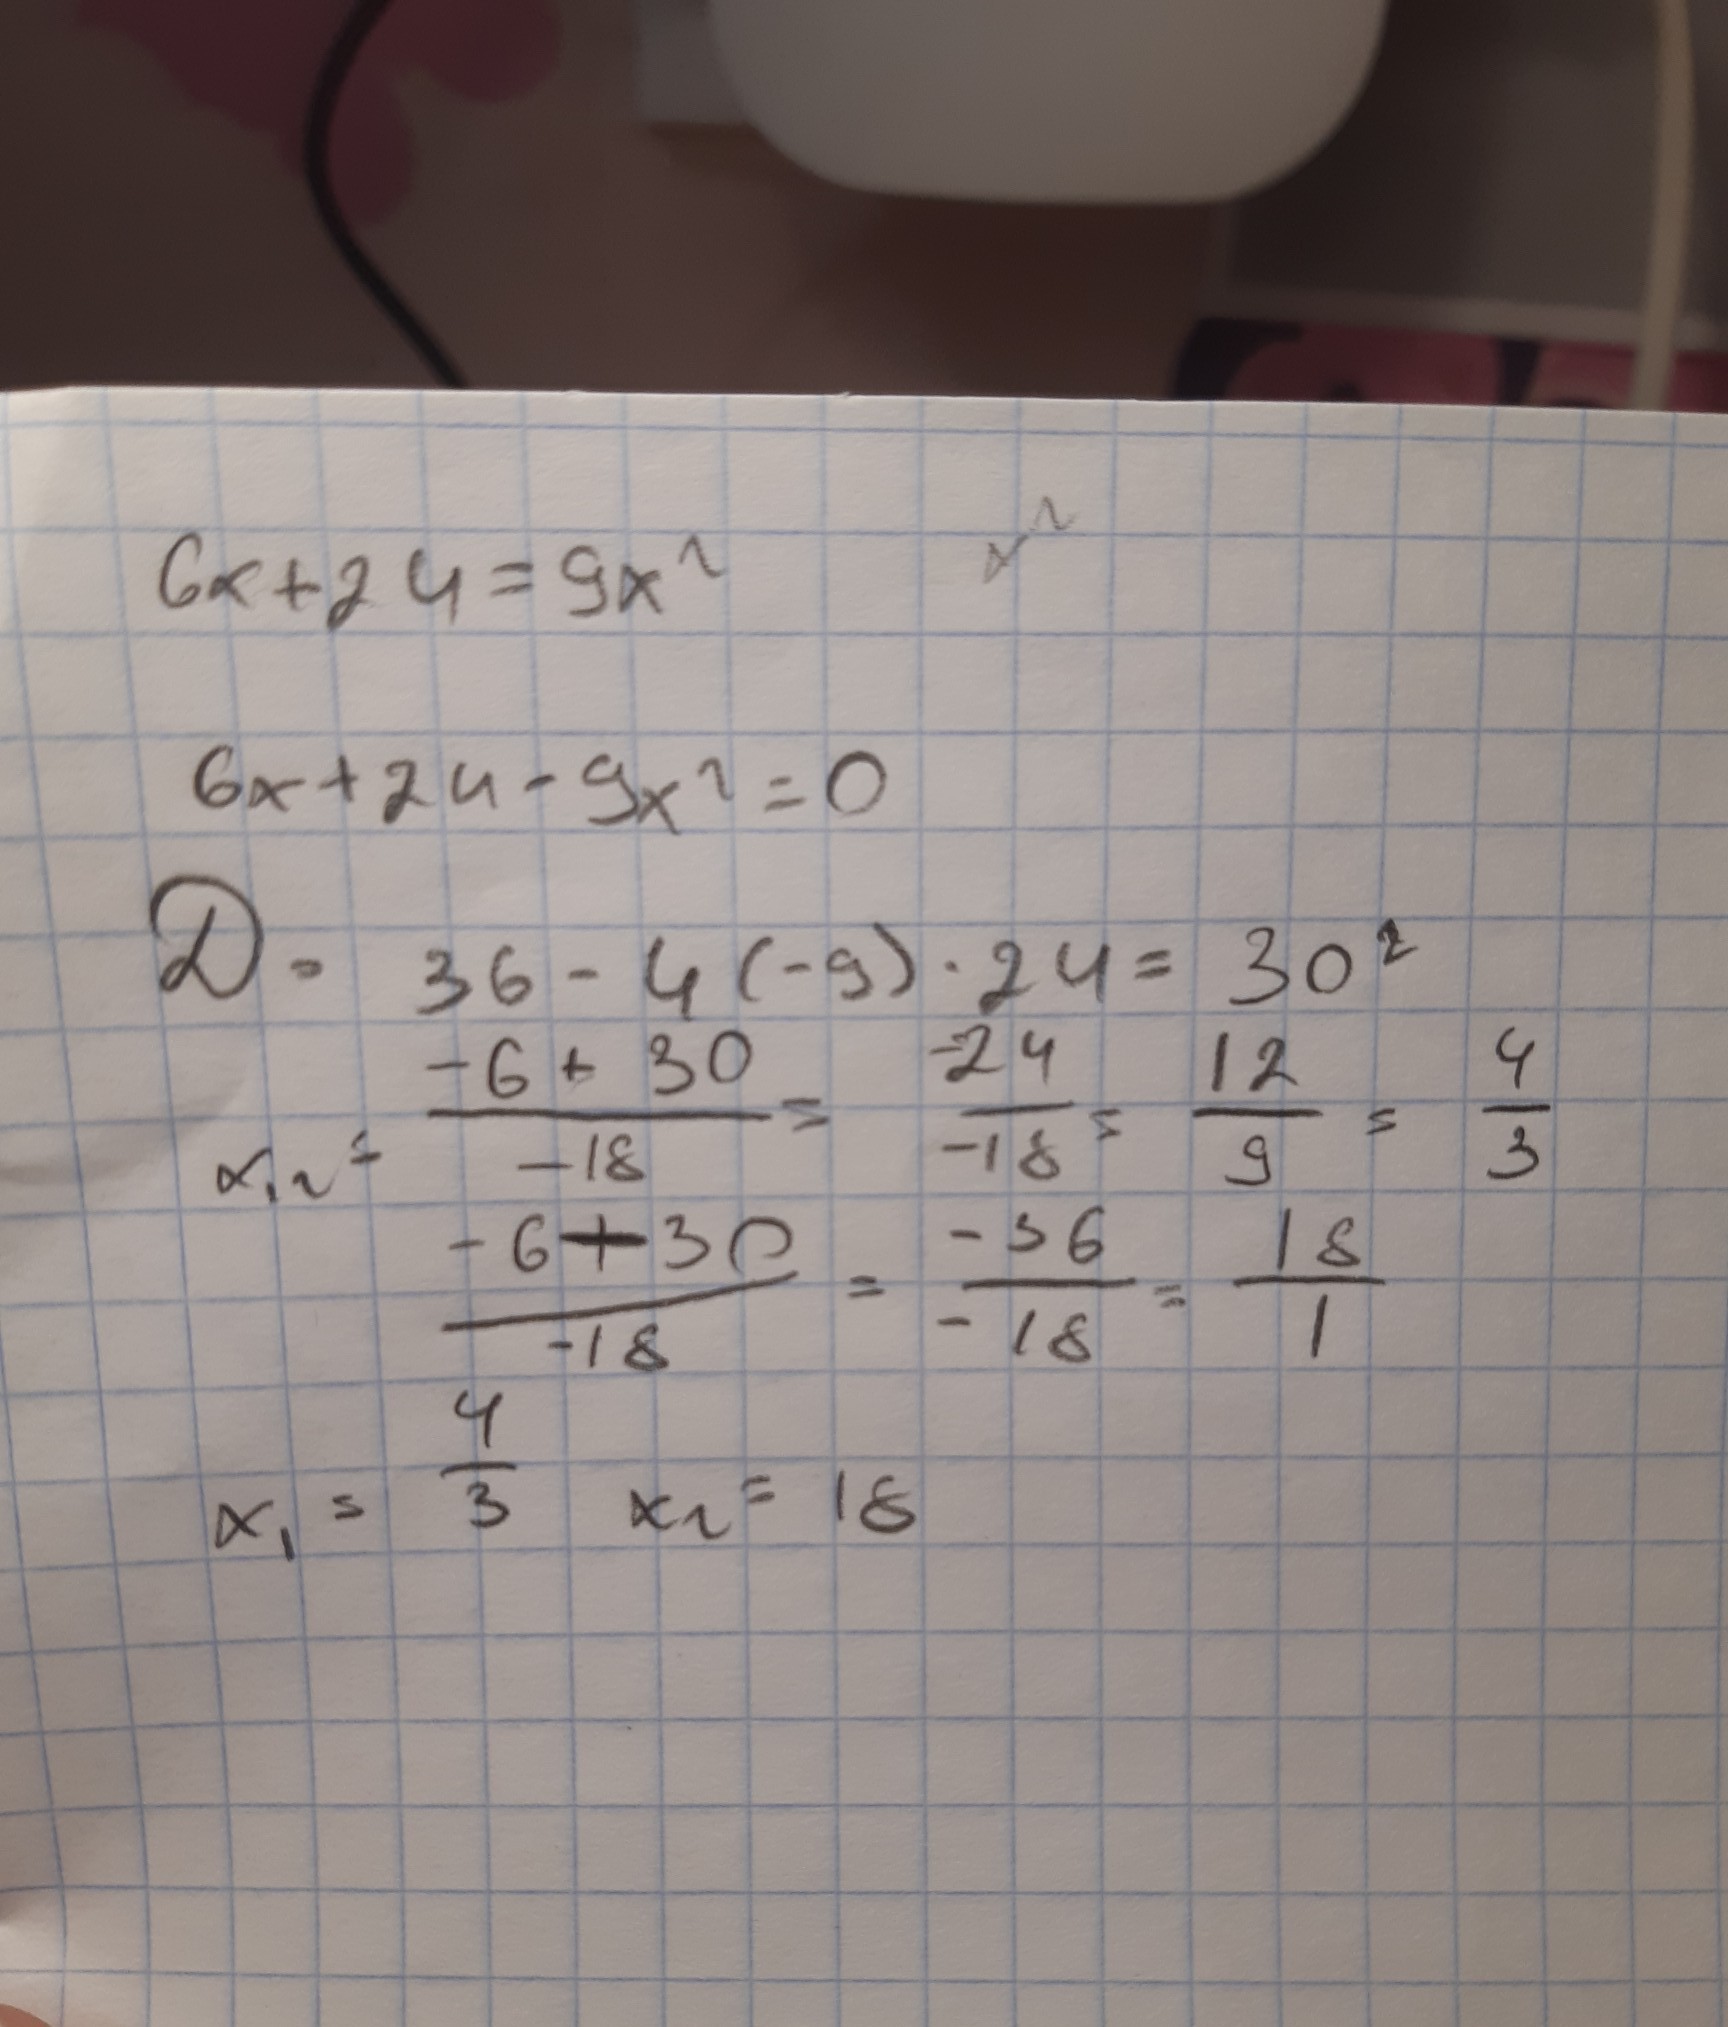 6x+24=9x²
x²
6x+24-9x²=0
D= 36-4(-9)·24=30²
x₁,₂= (-6+30)/(-18) = (-24)/(-18) = 12/9 = 4/3
(-6-30)/(-18) = (-36)/(-18) = 18/1
x₁= 4/3 x₂=18